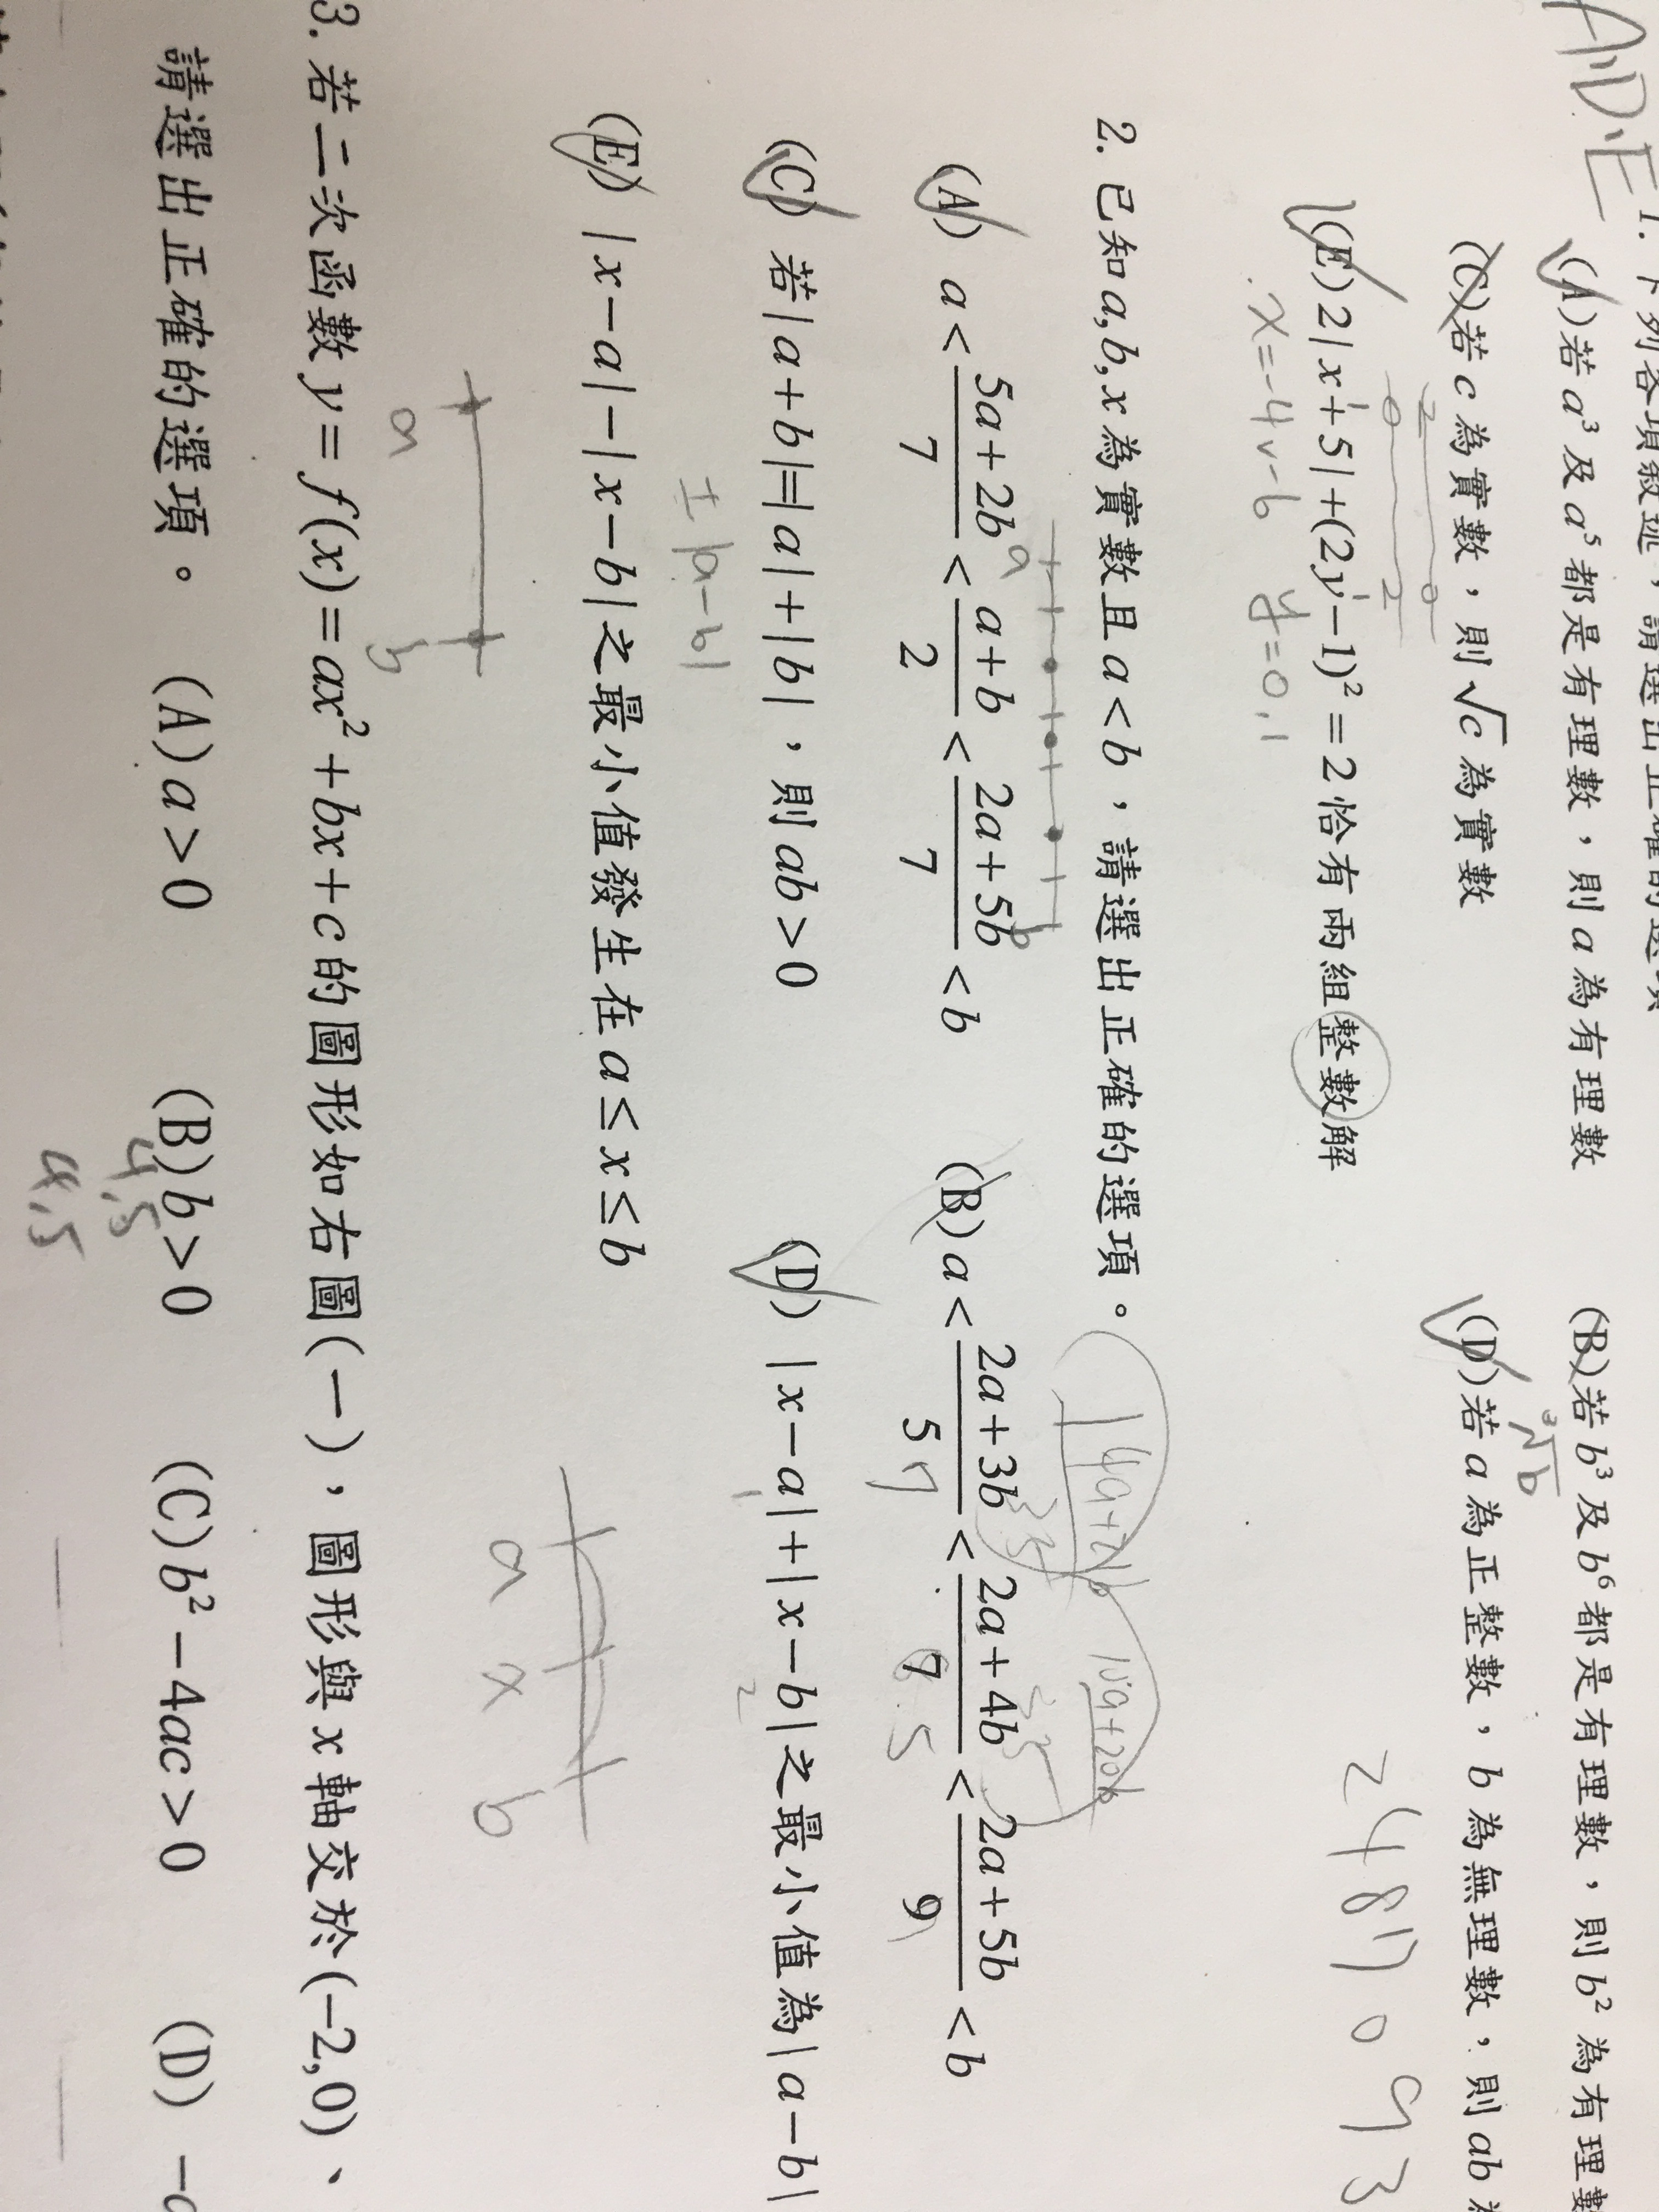 ADE
1. 下列各項敘述，請選出正確的選項
(A)若a³及a⁵都是有理數，則a為有理數 (B)若b³及b⁶都是有理數，則b²為有理數
³√b
(C)若c為實數，則√c為實數 (D)若a為正整數，b為無理數，則ab
2 0
0 2
(E)2|x+5|+(2y-1)²=2恰有兩組整數解
x=-4v-6 y=0,1
2. 已知a,b,x為實數且a<b，請選出正確的選項。
a b
(A) a<(5a+2b)/7<(a+b)/2<(2a+5b)/7<b (B) a<(2a+3b)/5<(2a+4b)/7<(2a+5b)/9<b
(C) 若|a+b|=|a|+|b|，則ab>0 (D) |x-a|+|x-b|之最小值為|a-b|
±|a-b|
(E) |x-a|-|x-b|之最小值發生在a≤x≤b
a b
a x b
3. 若二次函數y=f(x)=ax²+bx+c的圖形如右圖(一)，圖形與x軸交於(-2,0)、
請選出正確的選項。 (A)a>0 (B)b>0 (C)b²-4ac>0 (D)
4,5
4,5